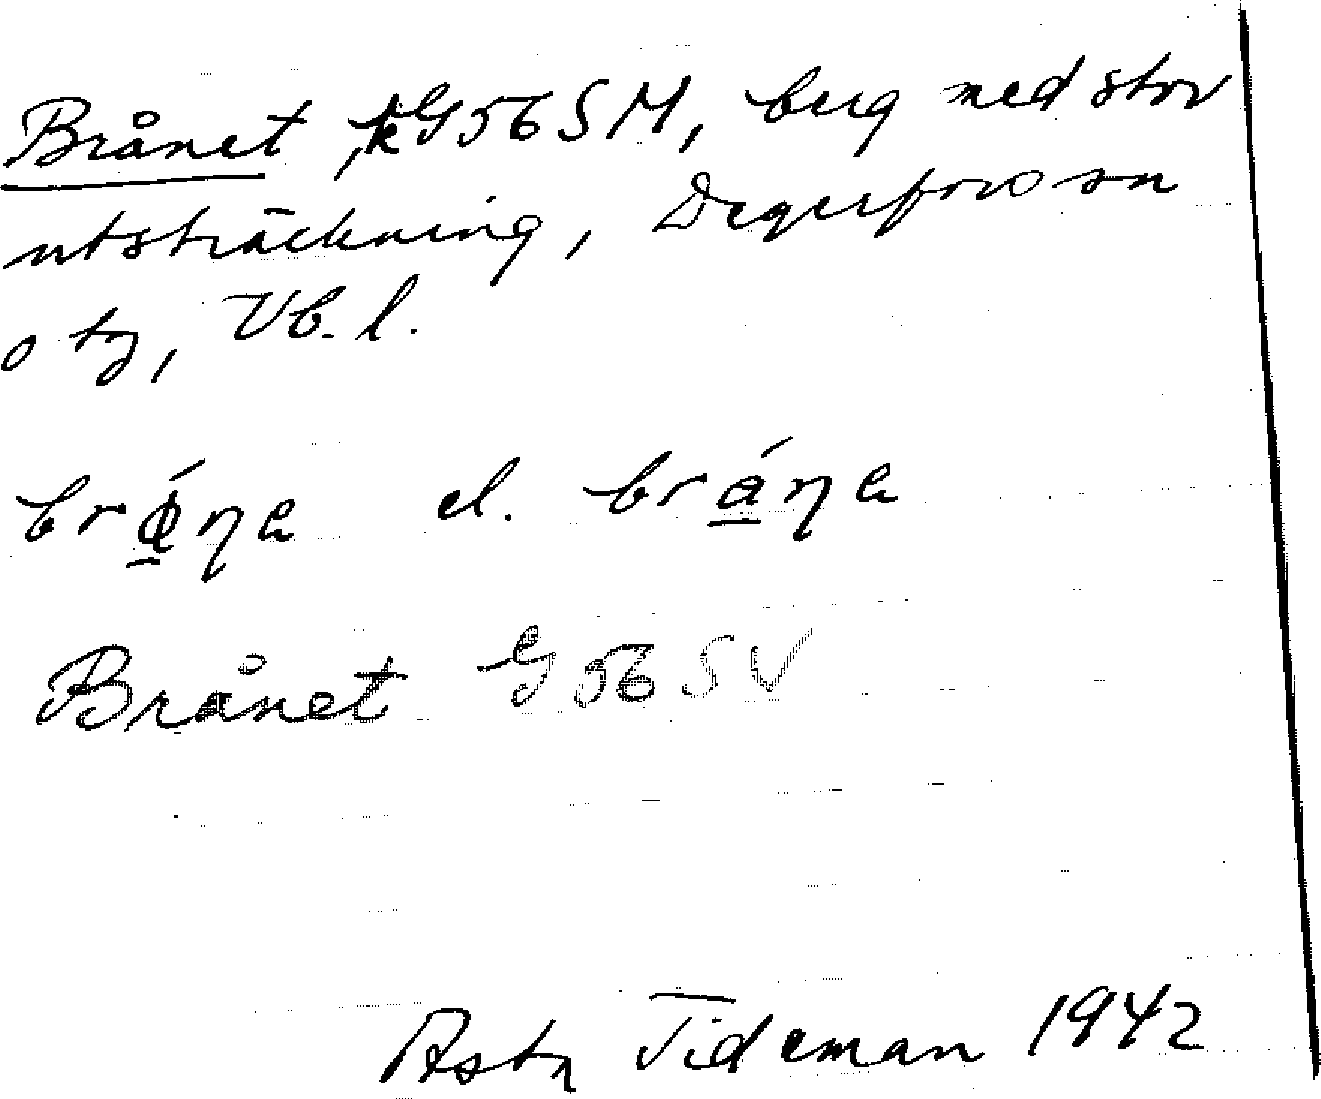 Brånet, k G56SM, berg med stor
utsträckning, Degerfors sn
o tg, Vb. l.
el.
Brånet G56SV
Asta Tideman 1942